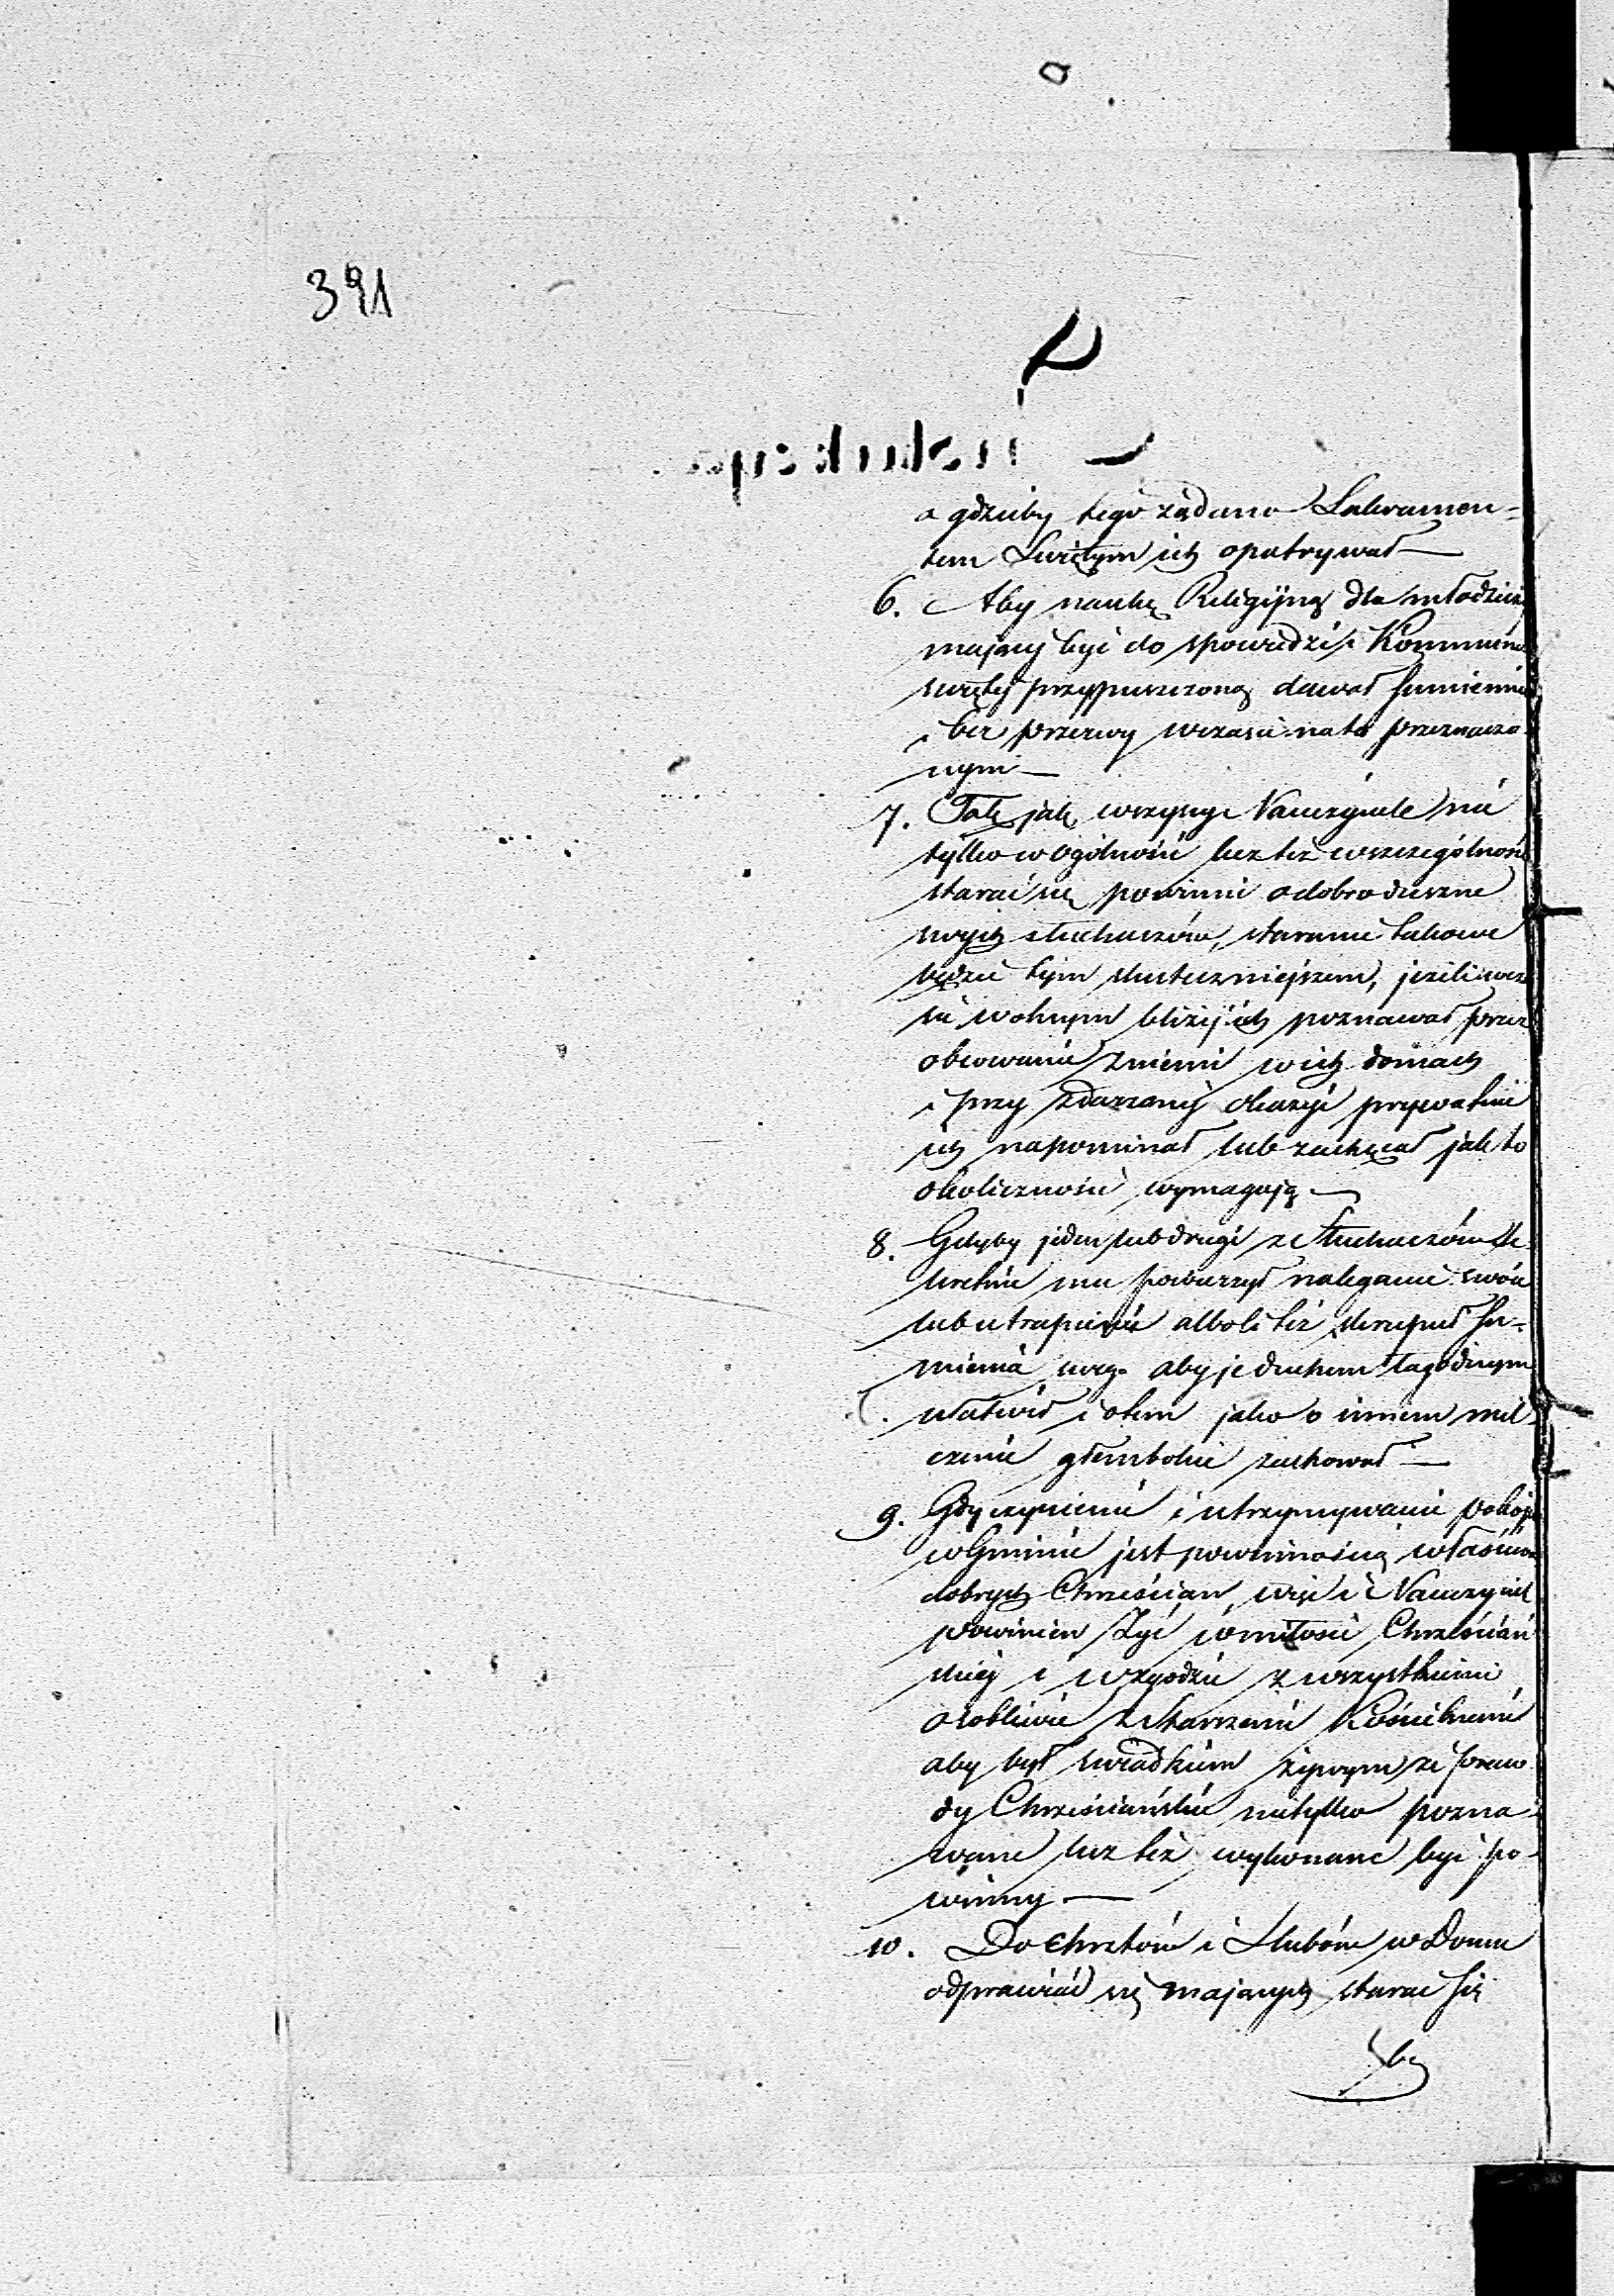 391
a gdzieby tego żądano Sakramen=
tem Swiętym ich opatrywał —
6. Aby naukę Religijną dla młodzieży
mającej być do spowiedzi i Kommunii
swiętej przypuszczoną dawał sumiennie
i bez przerwy wczasie na to przeznaczo
nym —
7. Tak jak wszyscy Nauczyciele nie
tylko w ogólności lecz też wszczególnosci
starać się powinni o dobro duszne
swych słuchaczów, staranie takowe
będzie tym skuteczniejszem, jeżeli wcza
sie wolnym bliżej ich poznawał przez
obcowanie zniemi w ich domach
i przy zdarzonej okazyi prywatnie
ich napominał lub zachęcał jak to
okoliczności wymagają —
8. Gdyby jeden lub drugi ze Słuchaczów Se
kretnie mu powierzył naleganie swoie
lub utrapienie alboli też skrupuł su-
mienia aby je duchem łagodnym
ułatwił i otem jako o innem mil
czenie głembokie zachował —
9. Gdy czynienie i utrzymywanie pokoju
w Gminie jest powinnością
dobrych Chrześcian, więc i Nauczyciel
powinien żyć w miłości Chrześciań
skiej i w zgodzie z wszystkiemi
osobliwie z Starszemi Kościelnemi
aby był swiadkiem żywym że praw
dy Chrześciańskie nietylko pozna-
wane lecz też wykonane być po-
winny —
10. Do Chrztów i Slubów w Domu
odprawiać się mających starać się